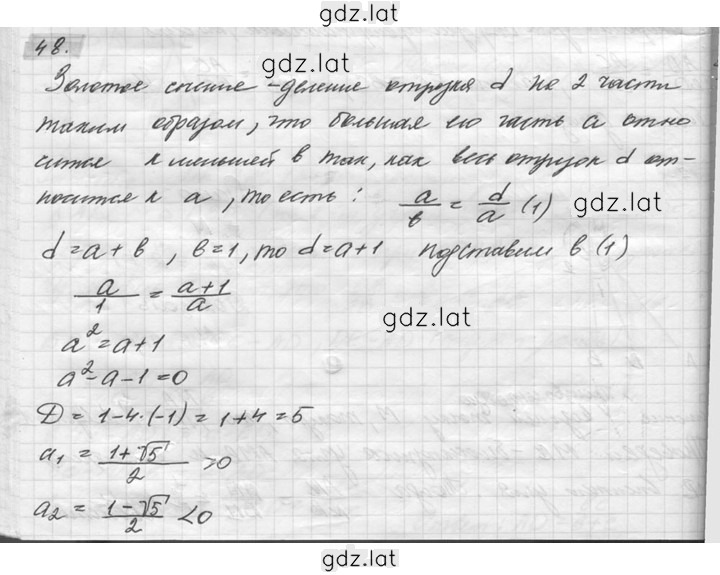 gdz.lat
48.
gdz.lat
Золотое сечение - деление отрезка d на 2 части
таким образом, что большая его часть a отно
сится к меньшей в так, как весь отрезок d от-
носится к a, то есть: a/в = d/a (1) gdz.lat
d = a + в, в = 1, то d = a + 1 подставим в (1)
a/1 = a+1/a
gdz.lat
a² = a + 1
a² - a - 1 = 0
D = 1 - 4·(-1) = 1 + 4 = 5
a₁ = 1+√5/2 > 0
a₂ = 1-√5/2 < 0
gdz.lat